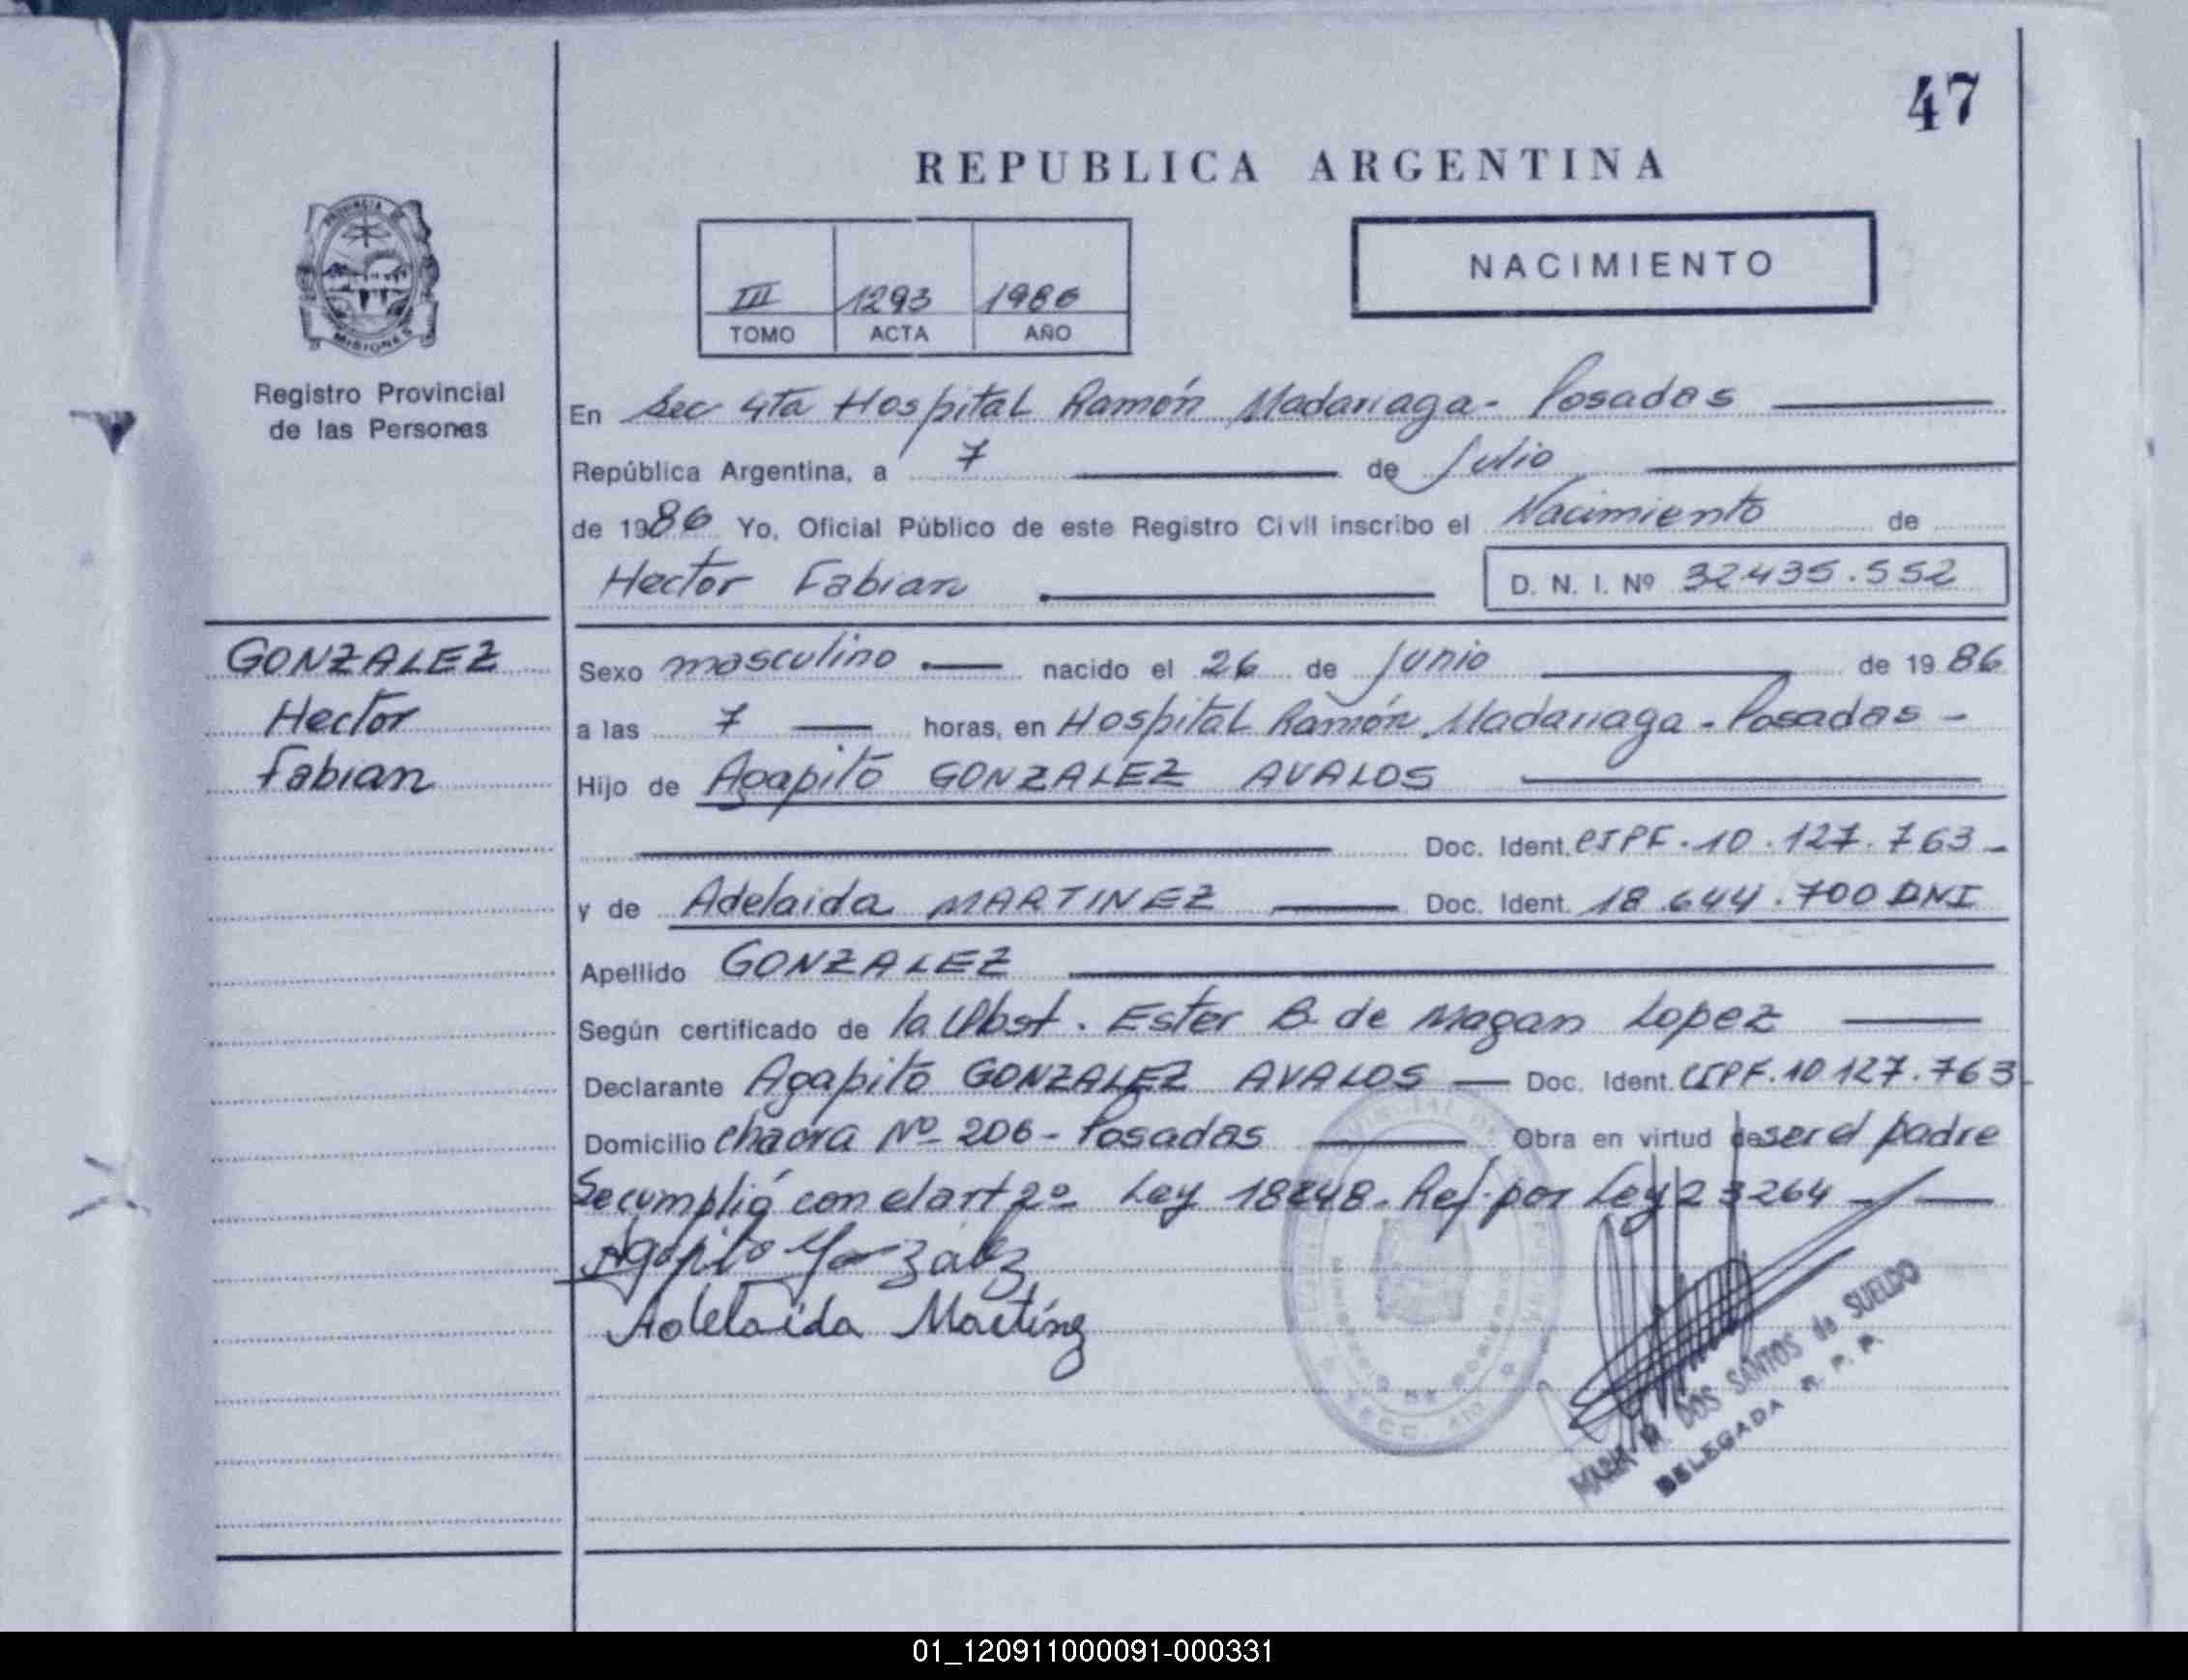 47
REPUBLICA ARGENTINA
PROVINCIA DE
MISIONES
Registro Provincial
de las Personas
III 1293 1986
TOMO ACTA AÑO
NACIMIENTO
En Sec 4ta Hospital Ramón Madariaga - Posadas
República Argentina, a 7 de Julio
de 1986 Yo, Oficial Público de este Registro Civil inscribo el Nacimiento de
Hector Fabian D. N. I. Nº 32.435.552
GONZALEZ
Hector
Fabian
Sexo masculino nacido el 26 de Junio de 1986
a las 7 horas, en Hospital Ramón Madariaga - Posadas -
Hijo de Agapito GONZALEZ AVALOS
Doc. Ident. CIPF. 10.127.763 -
y de Adelaida MARTINEZ Doc. Ident. 18.644.700 DNI
Apellido GONZALEZ
Según certificado de la Obst. Ester B. de Magan Lopez
Declarante Agapito GONZALEZ AVALOS Doc. Ident. CIPF. 10 127.763
Domicilio chacra Nº 206 - Posadas Obra en virtud de ser el padre
Se cumplió con el art 2º Ley 18248 - Ref. por Ley 23264
Agapito Gonzalez
Adelaida Martinez
MINISTERIO DE GOBIERNO
DOS SANTOS de SUELDO
DELEGADA R. P. P.
01_120911000091-000331